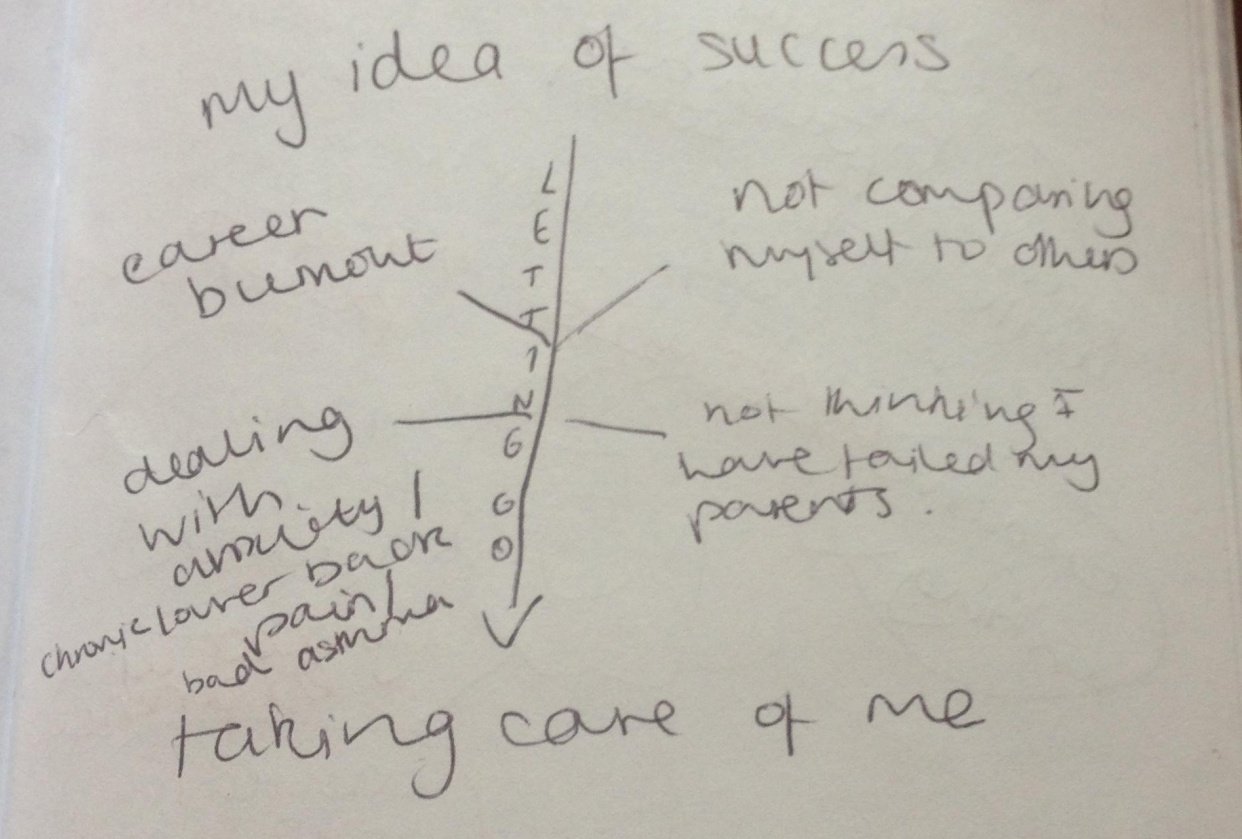 my idea of success
LETTING GO
career
burnout
not comparing
myself to others
dealing
with
anxiety /
chronic lower back
pain /
bad asthma
not thinking I
have failed my
parents.
taking care of me